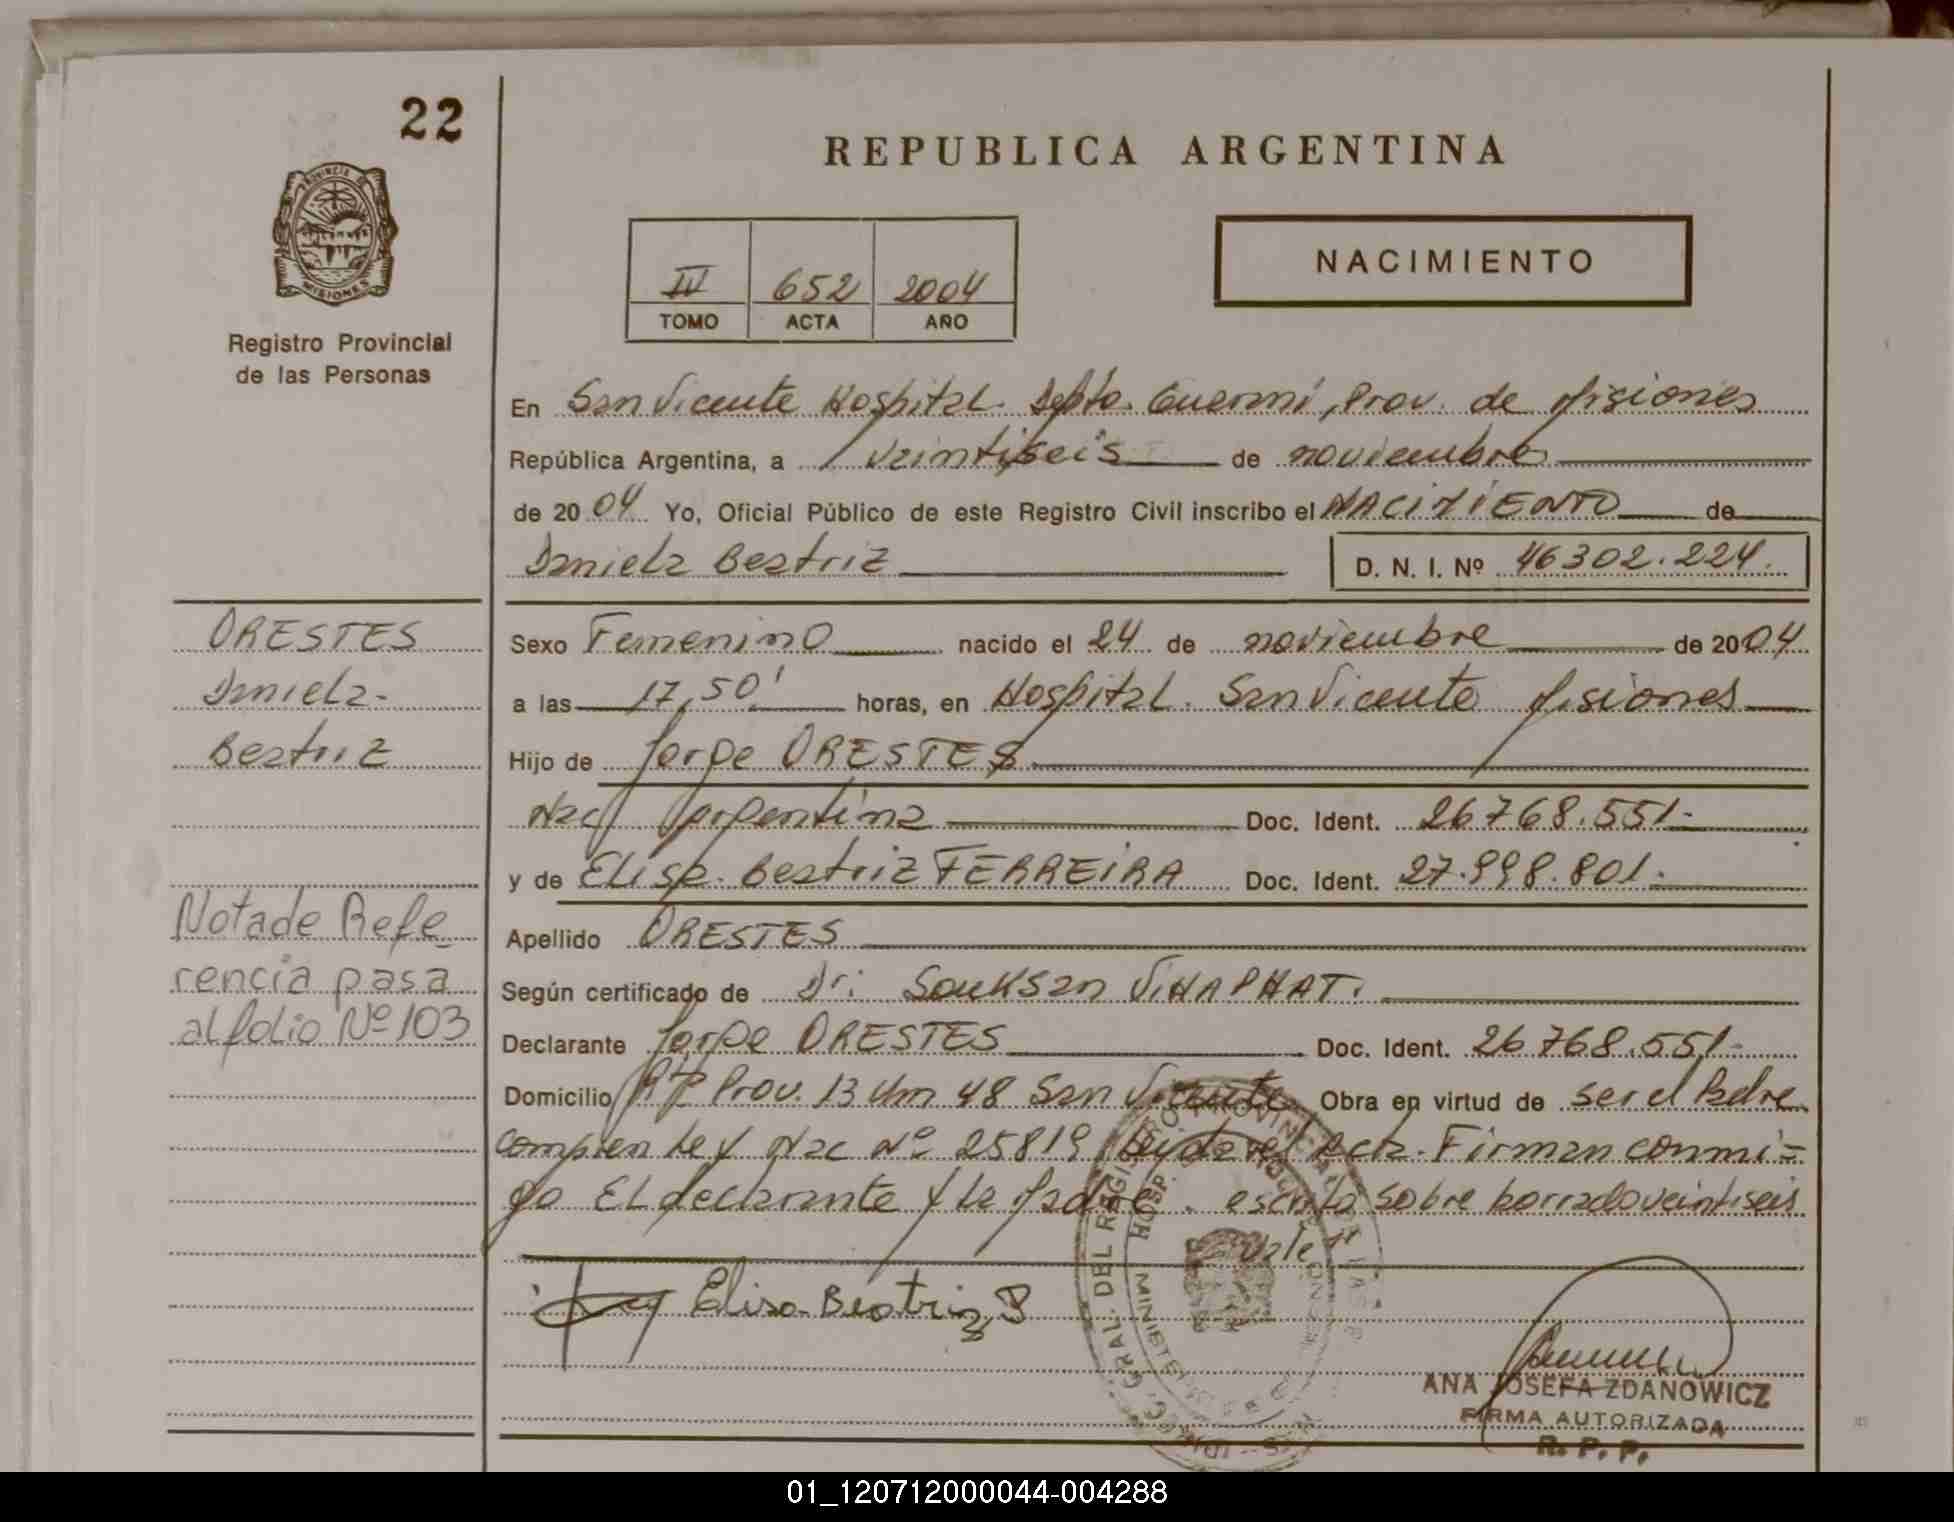 22
REPUBLICA ARGENTINA
PROVINCIA DE
MISIONES
Registro Provincial
de las Personas
IV 652 2004
TOMO ACTA AÑO
NACIMIENTO
En San Vicente Hospital Dpto. Guaraní, Prov. de Misiones
República Argentina, a veintiseis de noviembre
de 2004 Yo, Oficial Público de este Registro Civil inscribo el NACIMIENTO de
Daniela Beatriz D. N. I. Nº 46302.224.
ORESTES
Daniela-
Beatriz
Sexo Femenino nacido el 24 de noviembre de 2004
a las 17,50' horas, en Hospital San Vicente Misiones
Hijo de Jorge ORESTES
Nac Argentina Doc. Ident. 26768.551-
y de Elisa. Beatriz FERREIRA Doc. Ident. 27.998.801.
Nota de Refe
rencia pasa
al folio Nº 103
Apellido ORESTES
Según certificado de Dr. Souksan VIHAPHAT.
Declarante Jorge ORESTES Doc. Ident. 26768.551-
Domicilio Prov. 13 Km 48 San Vicente Obra en virtud de ser el Padre
Ley Nac Nº 25819 Leida el Acta. Firman conmi-
go El declarante y la Madre. escrito sobre borrado veintiseis
vale
Elisa Beatriz
ANA JOSEFA ZDANOWICZ
FIRMA AUTORIZADA
R. P. P.
01_120712000044-004288